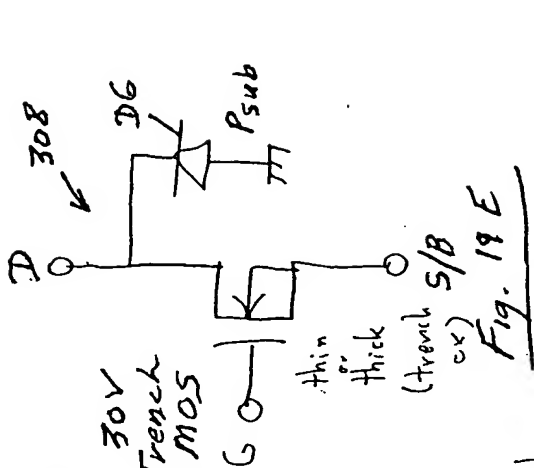 D
308
D6
Psub
30V
Trench
MOS
G
thin
or
thick
(trench
ox)
S/B
Fig. 19E